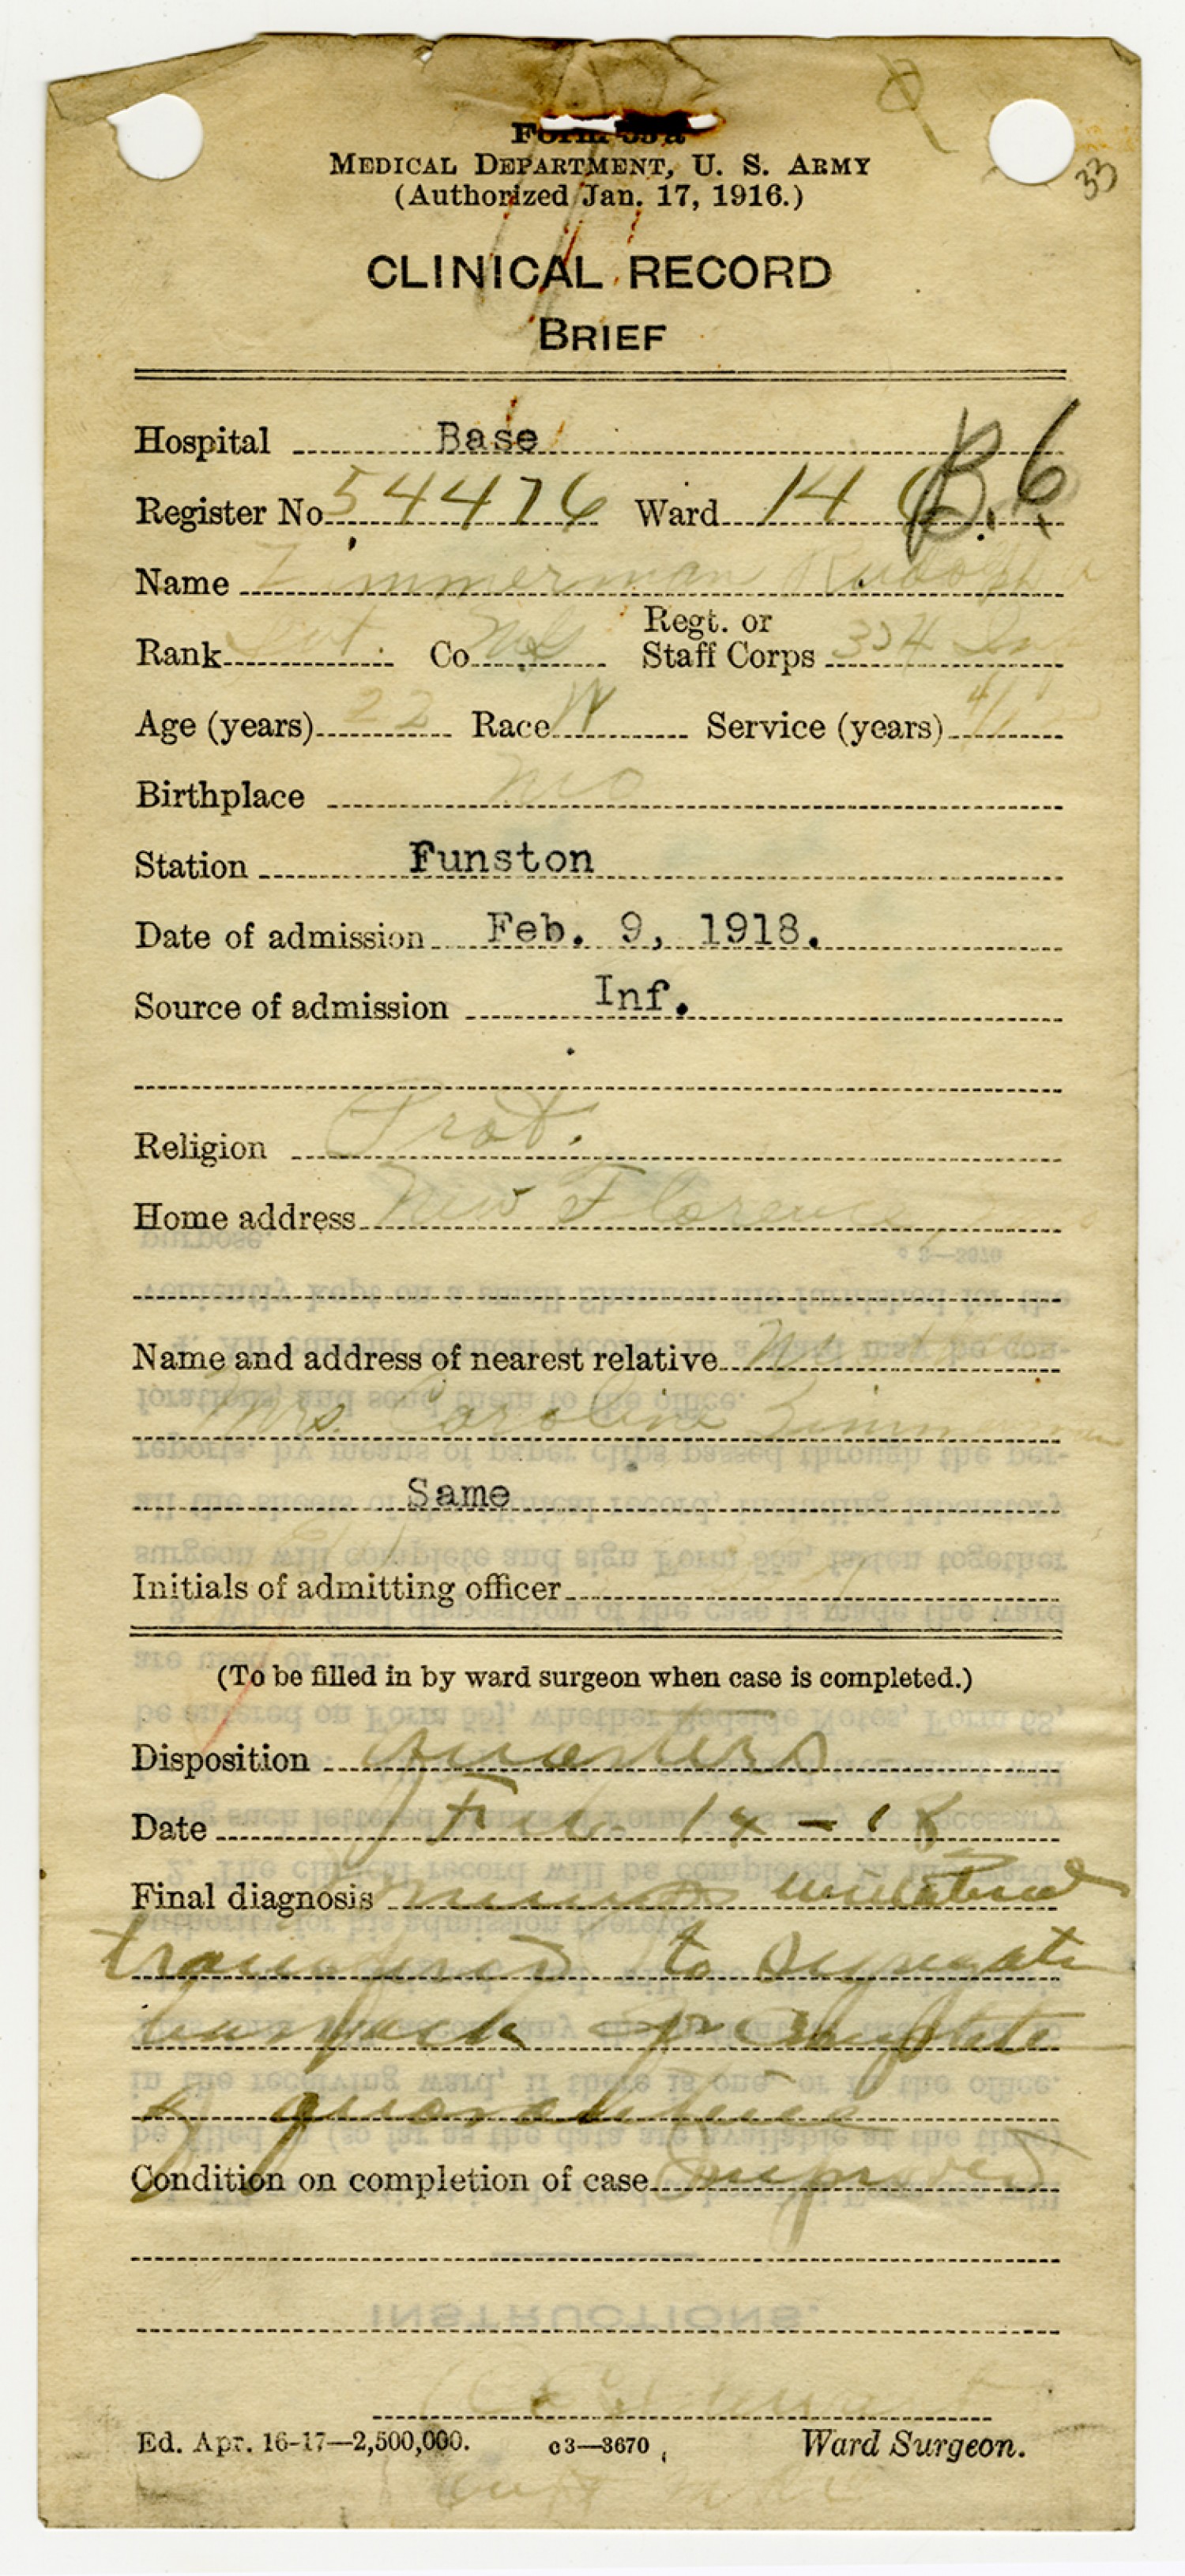 33
Form 55a
MEDICAL DEPARTMENT, U. S. ARMY
(Authorized Jan. 17, 1916.)
CLINICAL RECORD
BRIEF
Hospital Base
B.6
Register No. 54476 Ward 14
Name Zimmerman Rudolph
Regt. or
Rank Co. Staff Corps 354 Inf
Age (years) 22 Race W Service (years)
Birthplace Mo
Station Funston
Date of admission Feb. 9, 1918.
Source of admission Inf.
Religion Prot.
Home address New Florence
Name and address of nearest relative
Mrs. Caroline Zimmerman
Same
Initials of admitting officer
(To be filled in by ward surgeon when case is completed.)
Disposition Quarters
Date Feb. 14-18
Final diagnosis mumps unilateral
transferred to segregate
barrack to complete
quarantine
Condition on completion of case Improved
Ward Surgeon.
Ed. Apr. 16-17—2,500,000. 03—3670
Capt M R C